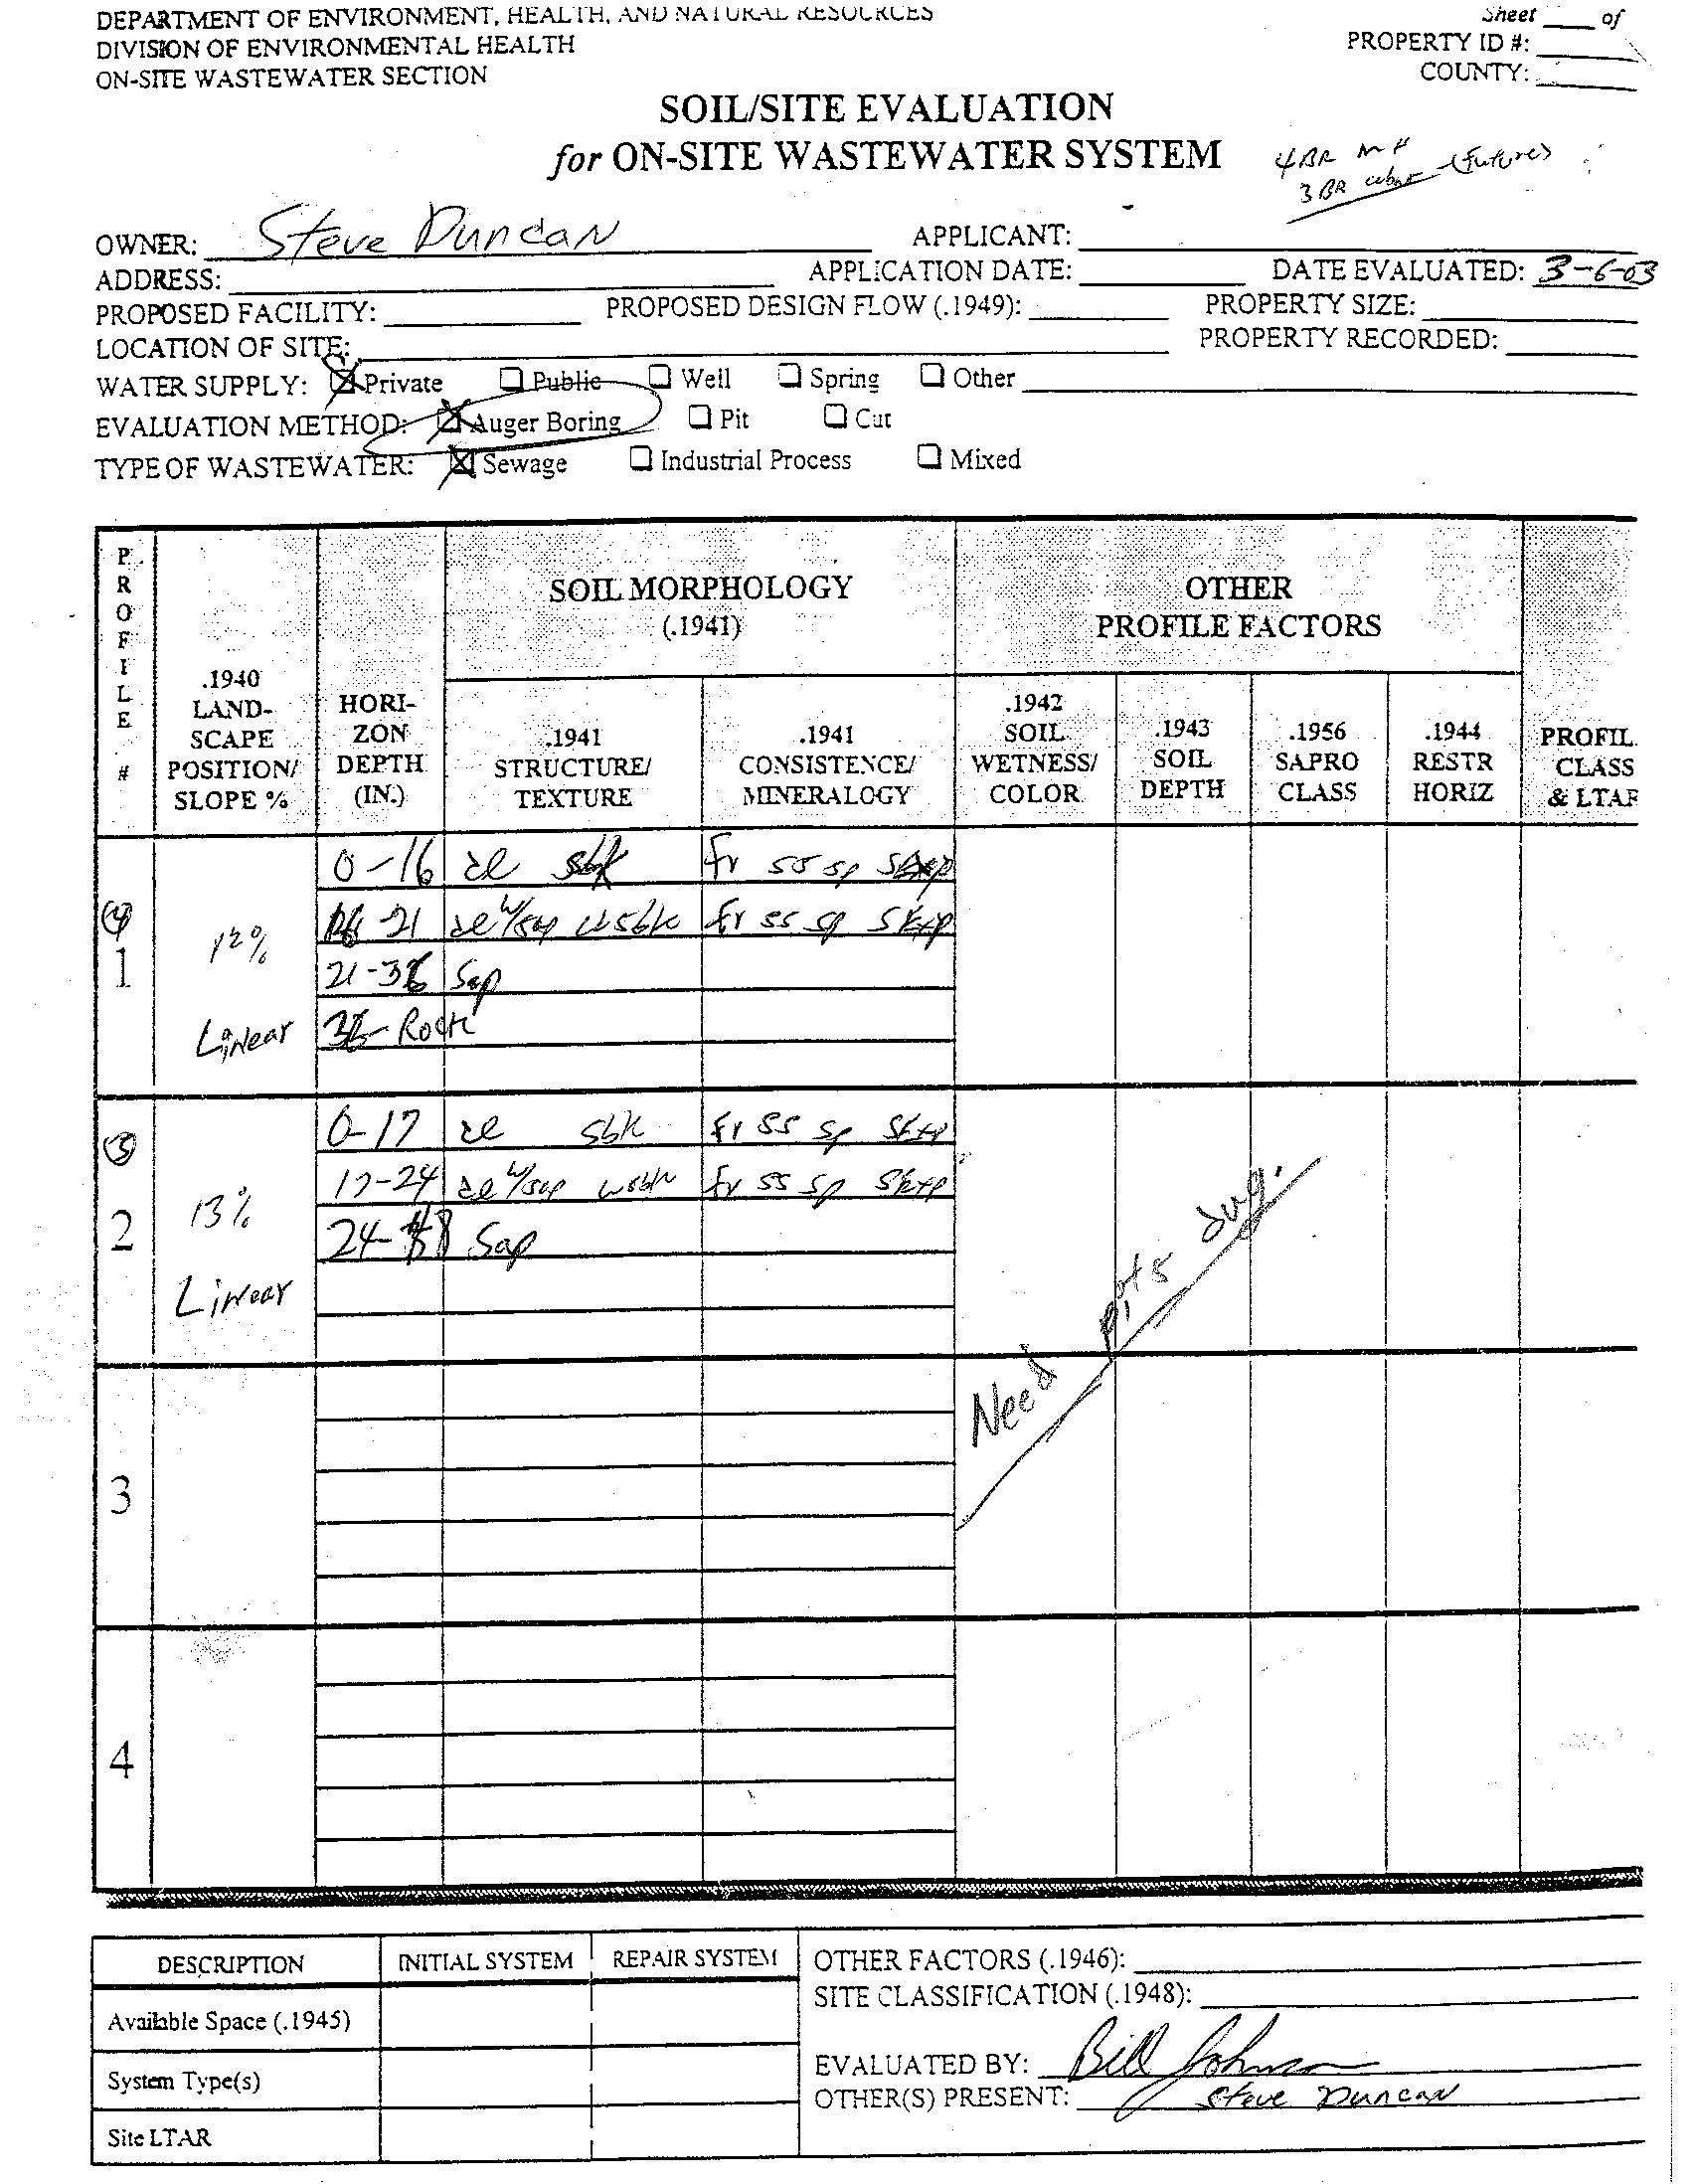 DEPARTMENT OF ENVIRONMENT, HEALTH, AND NATURAL RESOURCES
Sheet ____ of
DIVISION OF ENVIRONMENTAL HEALTH
PROPERTY ID #:
ON-SITE WASTEWATER SECTION
COUNTY:
SOIL/SITE EVALUATION
for ON-SITE WASTEWATER SYSTEM
4 BR MH
3 BR (future)
OWNER: Steve Duncan APPLICANT:
ADDRESS: APPLICATION DATE: DATE EVALUATED: 3-6-03
PROPOSED FACILITY: PROPOSED DESIGN FLOW (.1949): PROPERTY SIZE:
LOCATION OF SITE: PROPERTY RECORDED:
WATER SUPPLY: ☒ Private ☐ Public ☐ Well ☐ Spring ☐ Other
EVALUATION METHOD: ☒ Auger Boring ☐ Pit ☐ Cut
TYPE OF WASTEWATER: ☒ Sewage ☐ Industrial Process ☐ Mixed
PROFILE #
.1940 LAND-SCAPE POSITION/ SLOPE %
HORI-ZON DEPTH (IN.)
SOIL MORPHOLOGY (.1941)
.1941 STRUCTURE/ TEXTURE
.1941 CONSISTENCE/ MINERALOGY
OTHER PROFILE FACTORS
.1942 SOIL WETNESS/ COLOR
.1943 SOIL DEPTH
.1956 SAPRO CLASS
.1944 RESTR HORIZ
PROFIL CLASS & LTAR
4
1
12%
Linear
0-16 cl sbk fr ss sp
16-21 cl w/sap wsbk fr ss sp SExp
21-36 Sap
36- Rock
5
2
13%
Linear
0-17 cl sbk fr ss sp SExp
17-24 cl w/sap wsbk fr ss sp SExp
24-48 Sap
Need pits dug.
3
4
DESCRIPTION INITIAL SYSTEM REPAIR SYSTEM
Available Space (.1945)
System Type(s)
Site LTAR
OTHER FACTORS (.1946):
SITE CLASSIFICATION (.1948):
EVALUATED BY: Bill Johnson
OTHER(S) PRESENT: Steve Duncan